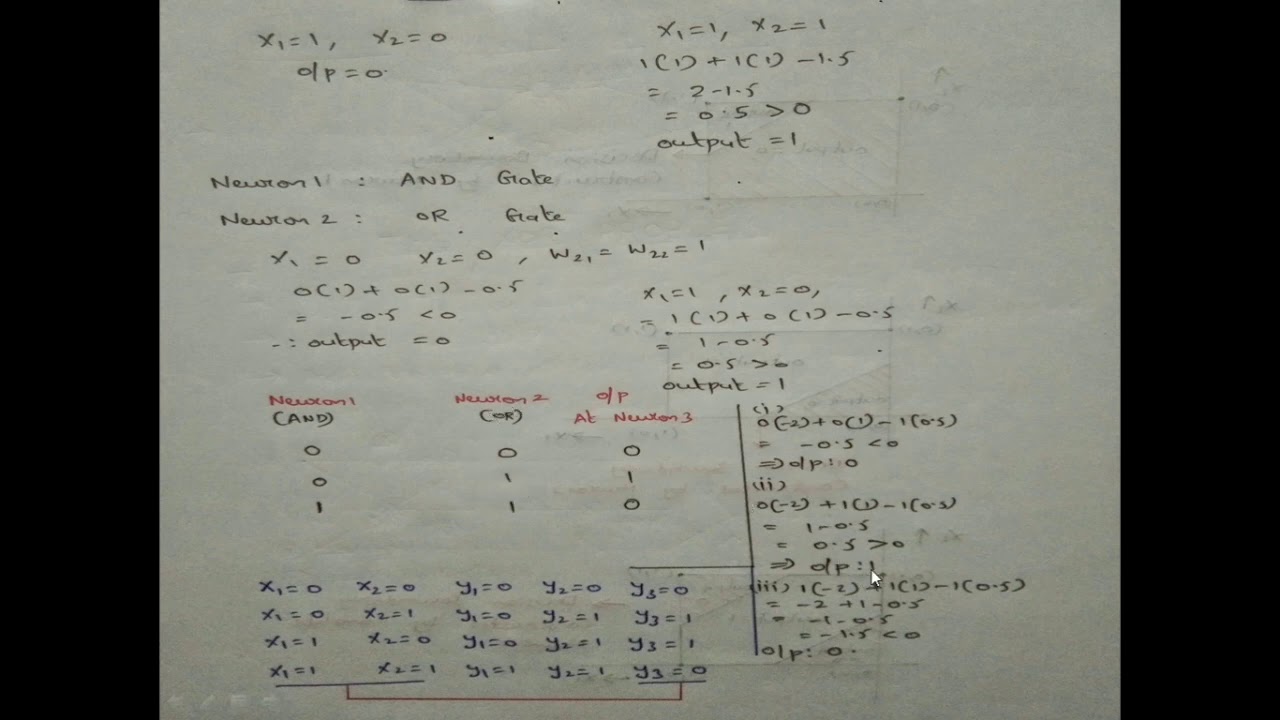 x₁=1, x₂=0
o/p=0.
x₁=1, x₂=1
1(1)+1(1)-1.5
= 2-1.5
= 0.5 >0
output =1
Neuron 1 : AND Gate
Neuron 2 : OR Gate
x₁ = 0 x₂=0, W₂₁ = W₂₂ = 1
0(1)+0(1)-0.5
= -0.5 <0
∴ output =0
x₁=1, x₂=0,
= 1(1)+0(1)-0.5
= 1-0.5
= 0.5 >0
output =1
Neuron 1 Neuron 2 o/p
(AND) (OR) At Neuron 3
0 0 0
0 1 1
1 1 0
(i)
0(-2)+0(1)-1(0.5)
= -0.5 <0
⇒ o/p: 0
(ii)
0(-2)+1(1)-1(0.5)
= 1-0.5
= 0.5 >0
⇒ o/p: 1
(iii) 1(-2)+1(1)-1(0.5)
= -2+1-0.5
= -1-0.5
= -1.5 <0
o/p: 0.
x₁=0 x₂=0 y₁=0 y₂=0 y₃=0
x₁=0 x₂=1 y₁=0 y₂=1 y₃=1
x₁=1 x₂=0 y₁=0 y₂=1 y₃=1
x₁=1 x₂=1 y₁=1 y₂=1 y₃=0